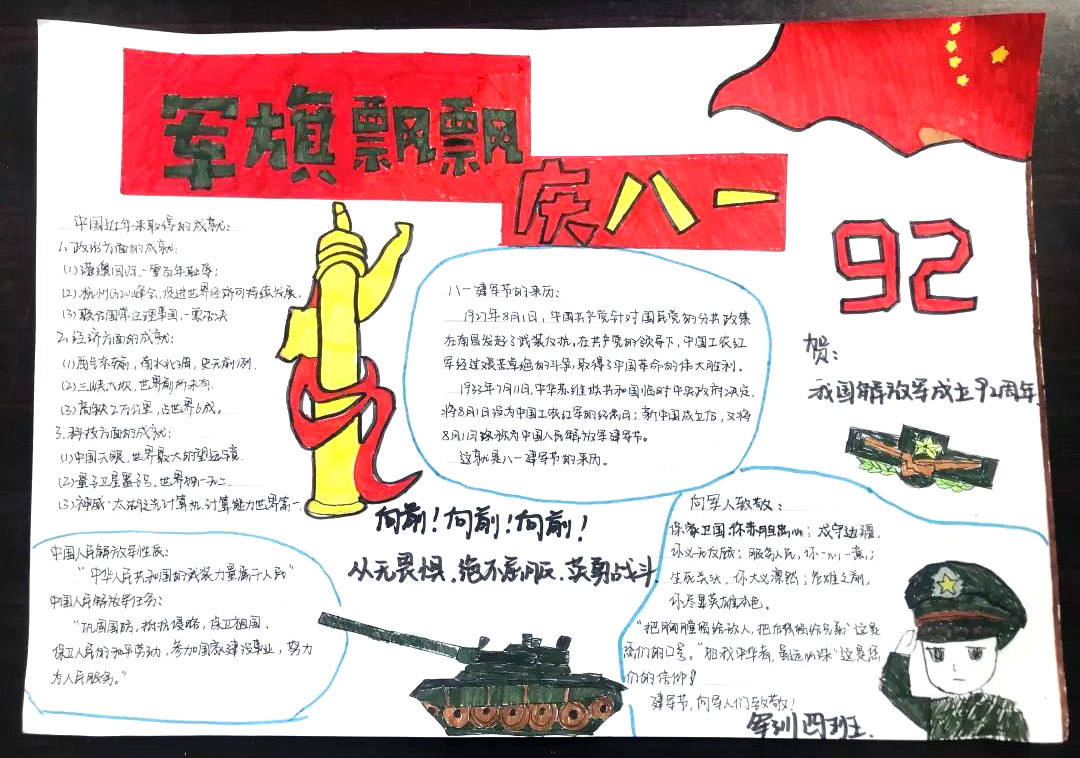 军旗飘飘
庆八一
92
贺:
我国解放军成立92周年.
中国近年来取得的成就:
1.政治方面的成就:
(1)港澳回归,一雪百年耻辱;
(2)杭州G20峰会,促进世界经济可持续发展.
(3)联合国常任理事国,一票否决
2.经济方面的成就:
(1)西气东输,南水北调,史无前例.
(2)三峡大坝,世界前所未有.
(3)高铁2万公里,占世界6成.
3.科技方面的成就:
(1)中国天眼,世界最大的望远镜.
(2)量子卫星墨子号,世界独一无二.
(3)神威·太湖之光计算机,计算能力世界第一.
八一建军节的来历:
1927年8月1日,中国共产党针对国民党的分共政策
在南昌发起了武装反抗,在共产党的领导下,中国工农红
军经过艰苦卓绝的斗争,取得了中国革命的伟大胜利。
1933年7月11日,中华苏维埃共和国临时中央政府决定,
将8月1日设为中国工农红军的纪念日;新中国成立后,又将
8月1日改称为中国人民解放军建军节。
这就是八一建军节的来历。
向前!向前!向前!
从无畏惧.绝不屈服.英勇战斗.
中国人民解放军性质:
"中华人民共和国的武装力量属于人民"
中国人民解放军任务:
"巩固国防,抵抗侵略,保卫祖国,
保卫人民的和平劳动,参加国家建设事业,努力
为人民服务。"
向军人致敬:
保家卫国,你赤胆忠心;戍守边疆,
你义无反顾;服务人民,你一心一意;
生死关头,你大义凛然;危难之前,
你尽显英雄本色。
"把胸膛留给敌人,把后背留给兄弟"这是
你们的口号。"犯我中华者,虽远必诛"这是您
们的信仰!
建军节,向军人们致敬!
军训四班.